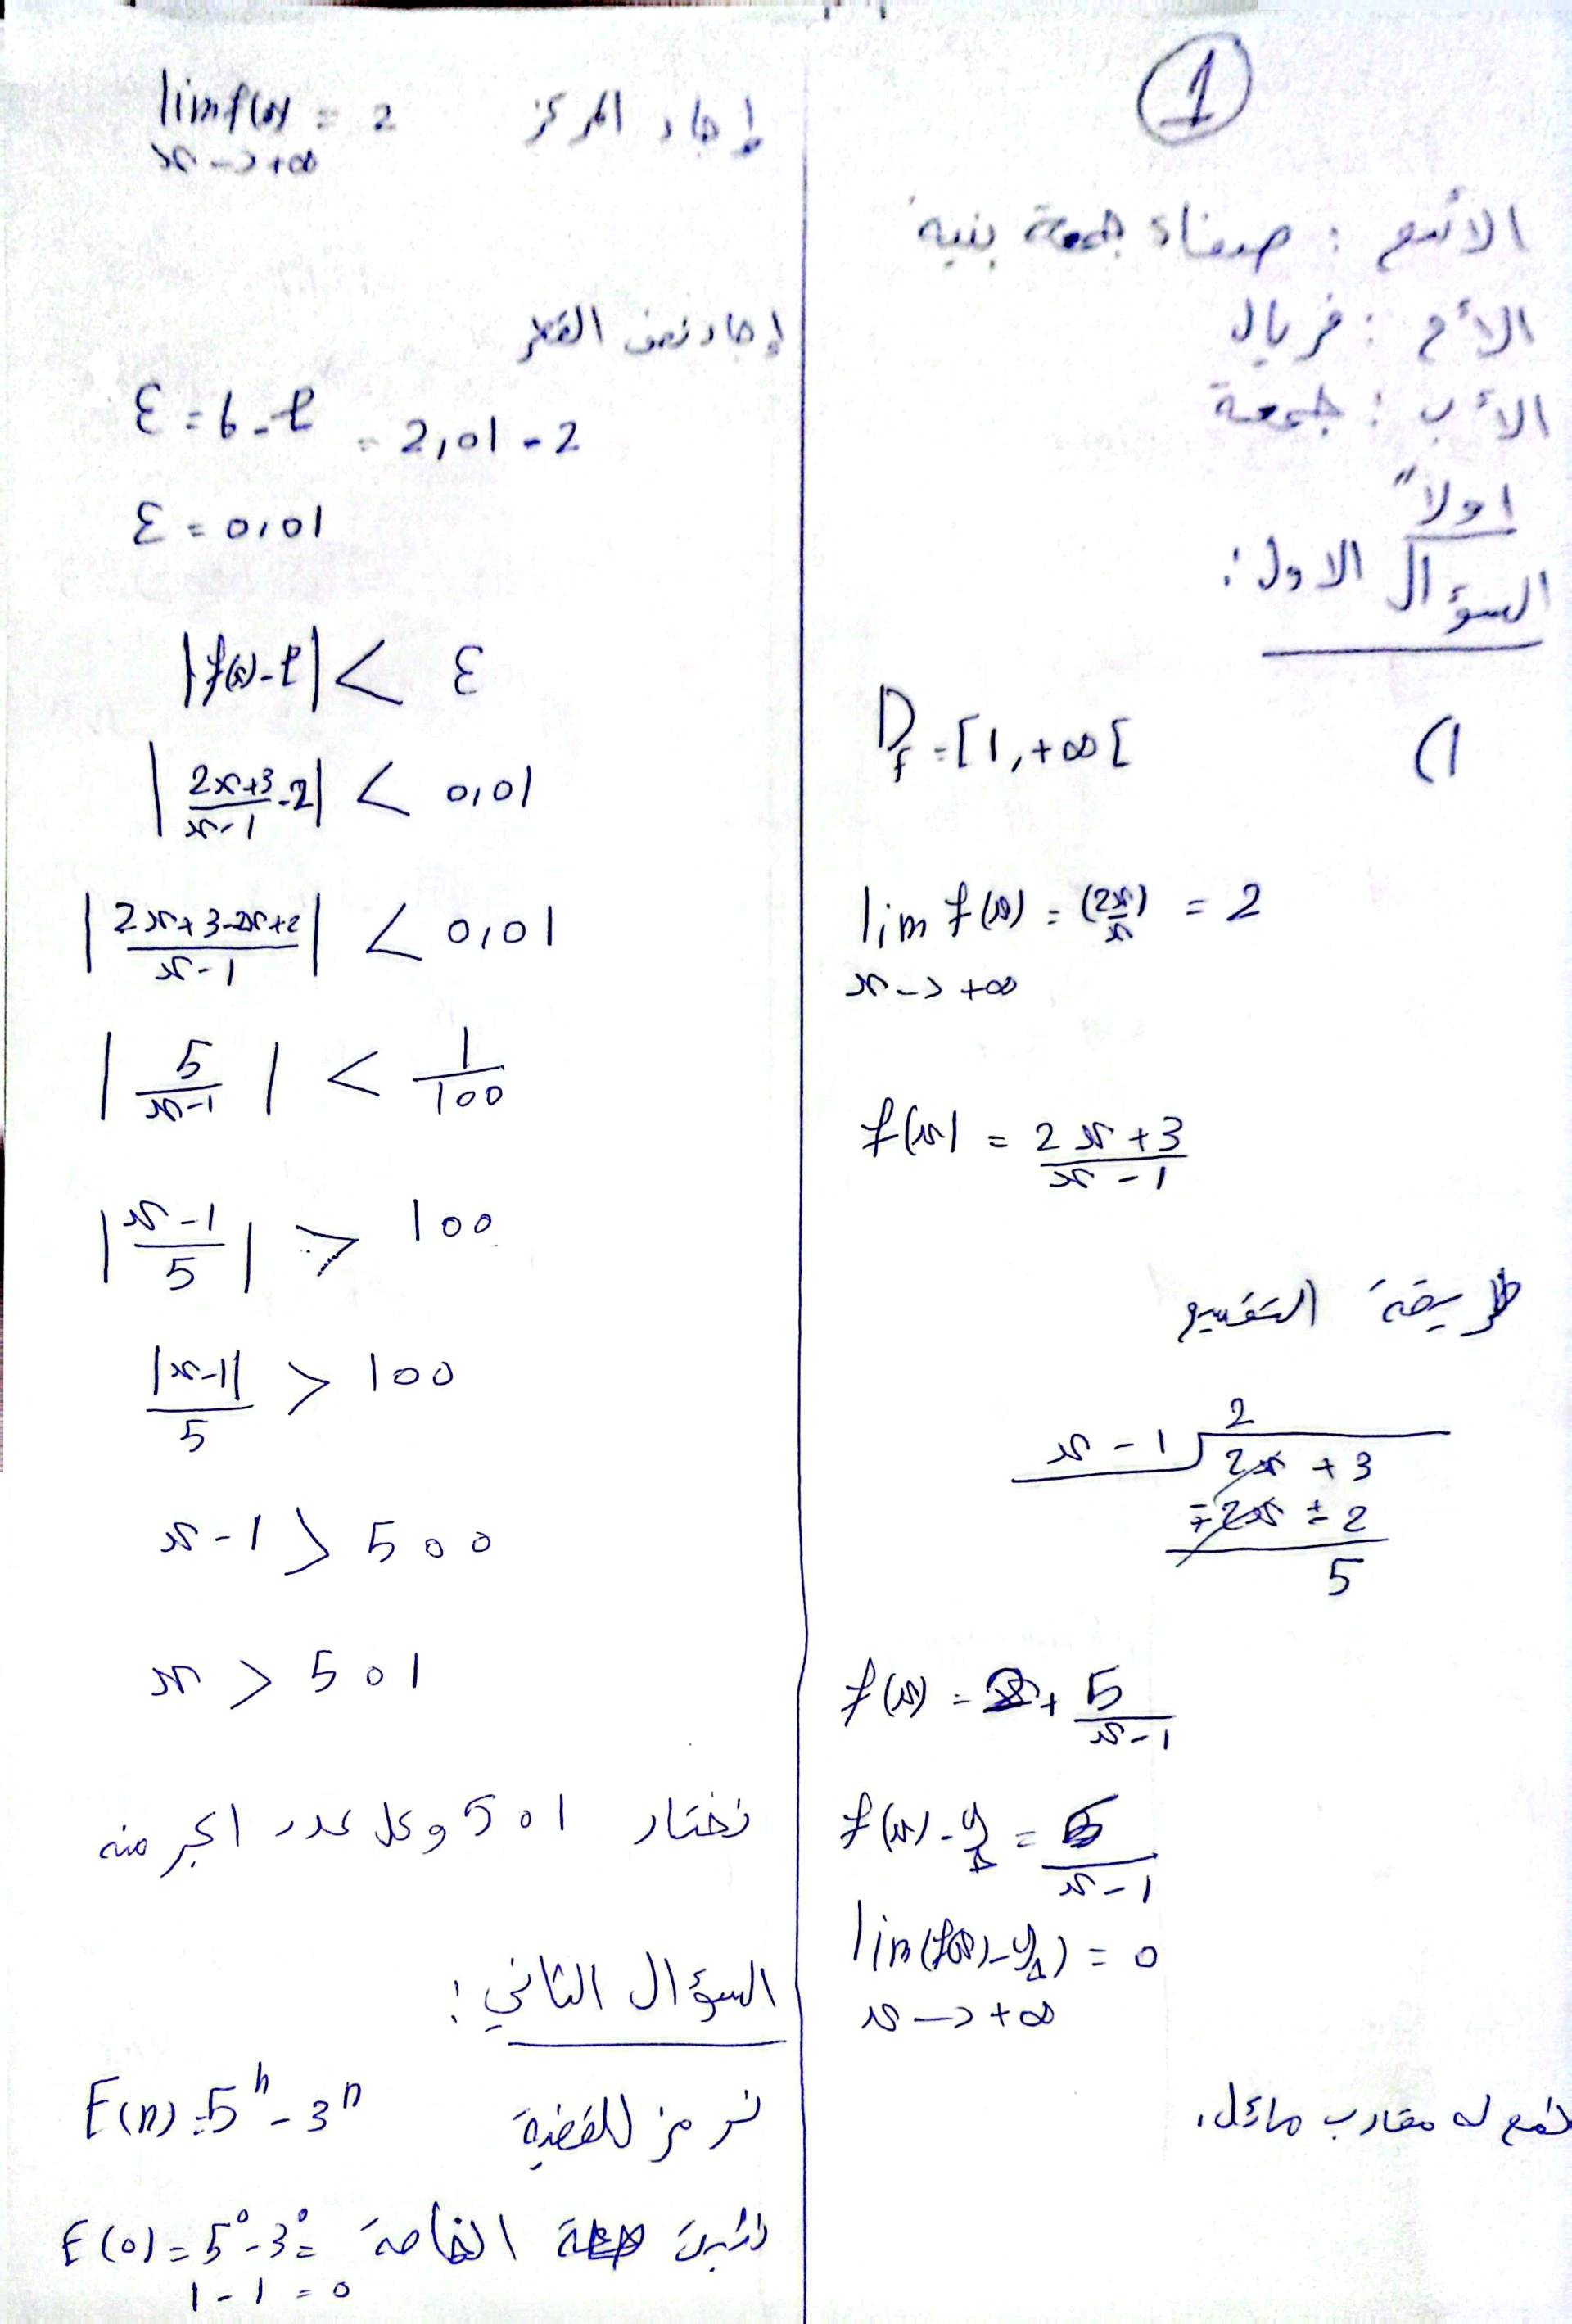 1
الأسم : صفاء جمعة بنيه
الأم : فريال
الأب : جمعة
اولاً
السؤال الاول :
1) D_f = [1, +∞[
lim f(x) = (2x/x) = 2
x -> +∞
f(x) = (2x+3)/(x-1)
طريقة التقسيم
2
x - 1 2x + 3
∓2x ± 2
5
f(x) = 2 + 5/(x-1)
f(x) - y_Δ = 5/(x-1)
lim (f(x) - y_Δ) = 0
x -> +∞
له مقارب مائل.
إيجاد المركز lim f(x) = 2
x -> +∞
إيجاد نصف القطر
ε = b - ℓ = 2,01 - 2
ε = 0,01
|f(x) - ℓ| < ε
|(2x+3)/(x-1) - 2| < 0,01
|(2x+3-2x+2)/(x-1)| < 0,01
|5/(x-1)| < 1/100
|(x-1)/5| > 100
|x-1|/5 > 100
x - 1 > 500
x > 501
نختار 501 وكل عدد اكبر منه
السؤال الثاني :
نرمز للقضية E(n) = 5^n - 3^n
الخاصة E(0) = 5^0 - 3^0 =
1 - 1 = 0